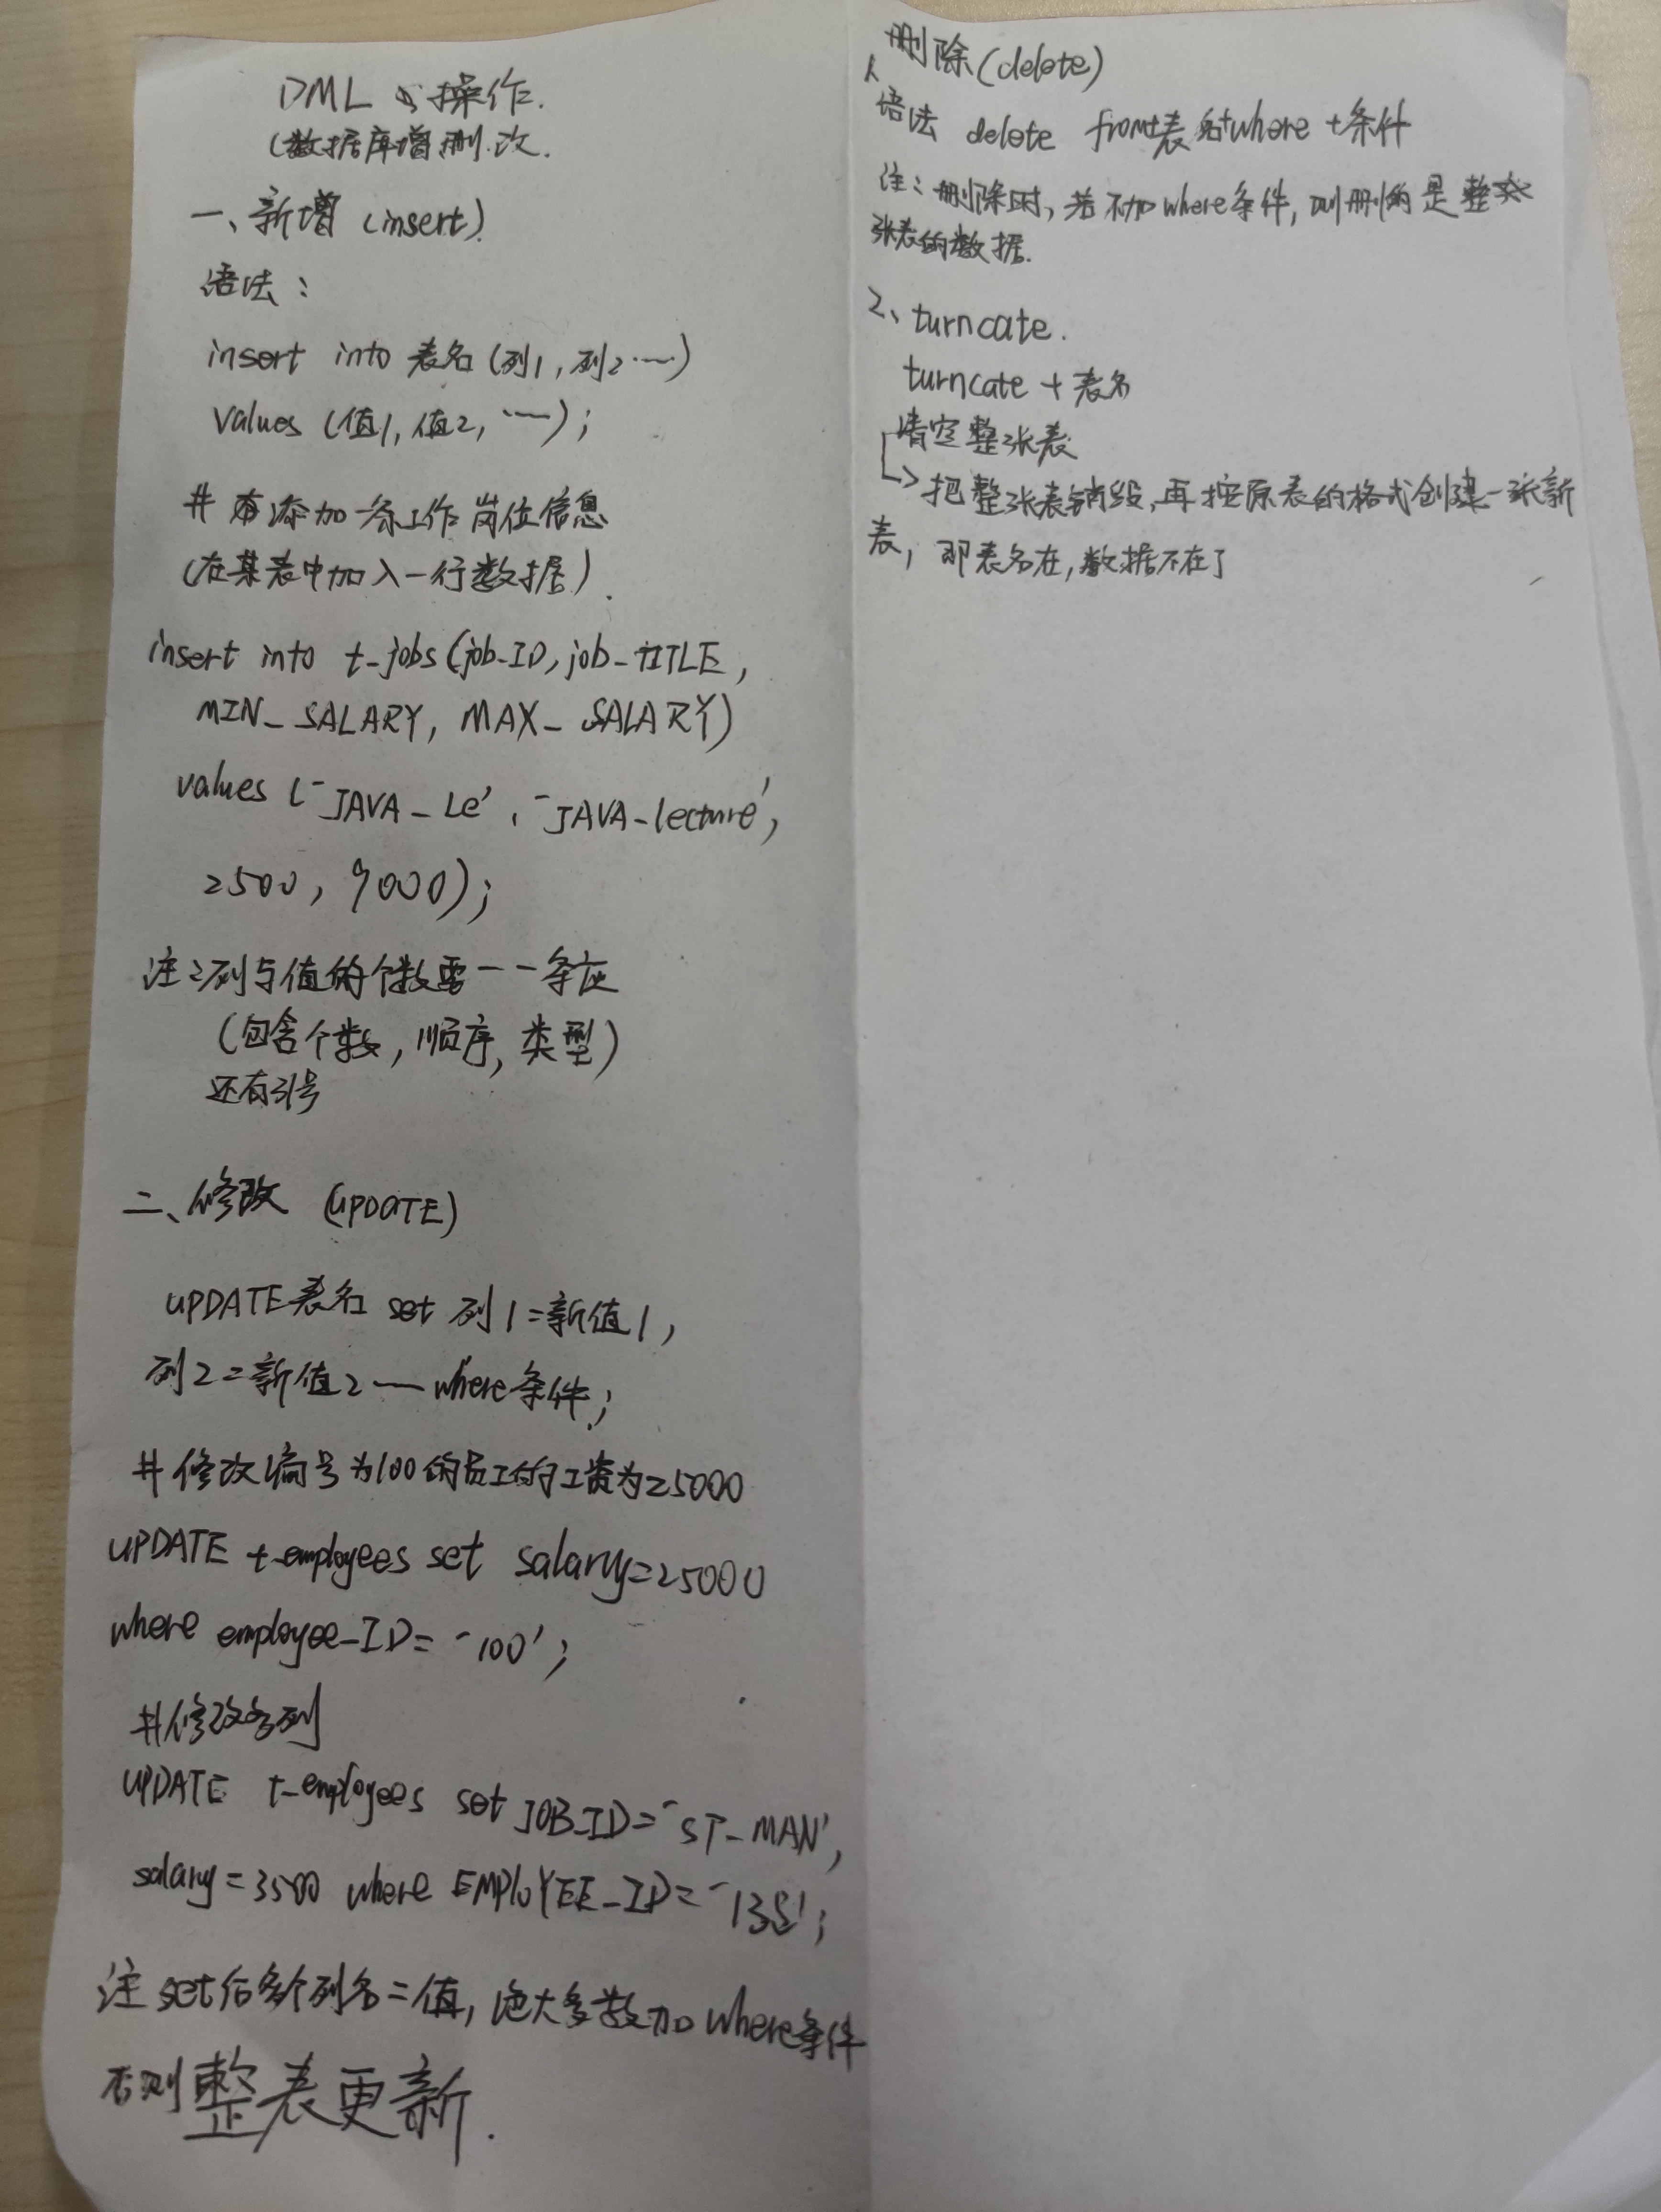 DML 的操作.
(数据库增删改.
一、新增 (insert).
语法:
insert into 表名 (列1, 列2……)
values (值1, 值2, ……);
# 添加一条工作岗位信息
(在某表中加入一行数据).
insert into t-jobs (job-ID, job-TITLE,
MIN_SALARY, MAX_SALARY)
values ('JAVA_Le', 'JAVA-lecture',
2500, 9000);
注:列与值的个数要一一条应
(包含个数, 顺序, 类型)
还有引号
二、修改 (UPDATE)
UPDATE 表名 set 列1=新值1,
列2=新值2 … where条件;
# 修改编号为100的员工的工资为25000
UPDATE t-employees set salary=25000
where employee-ID='100';
#修改多列
UPDATE t-employees set JOB-ID='ST-MAN',
salary=3500 where EMPLOYEE-ID='135';
注 set后多个列名=值, 绝大多数加where条件
否则整表更新.
删除(delete)
1、
语法 delete from+表名+where+条件
注:删除时, 若不加where条件, 则删的是整
张表的数据.
2、turncate.
turncate + 表名
清空整张表
把整张表销毁, 再按原表的格式创建一张新
表, 即表名在, 数据不在了